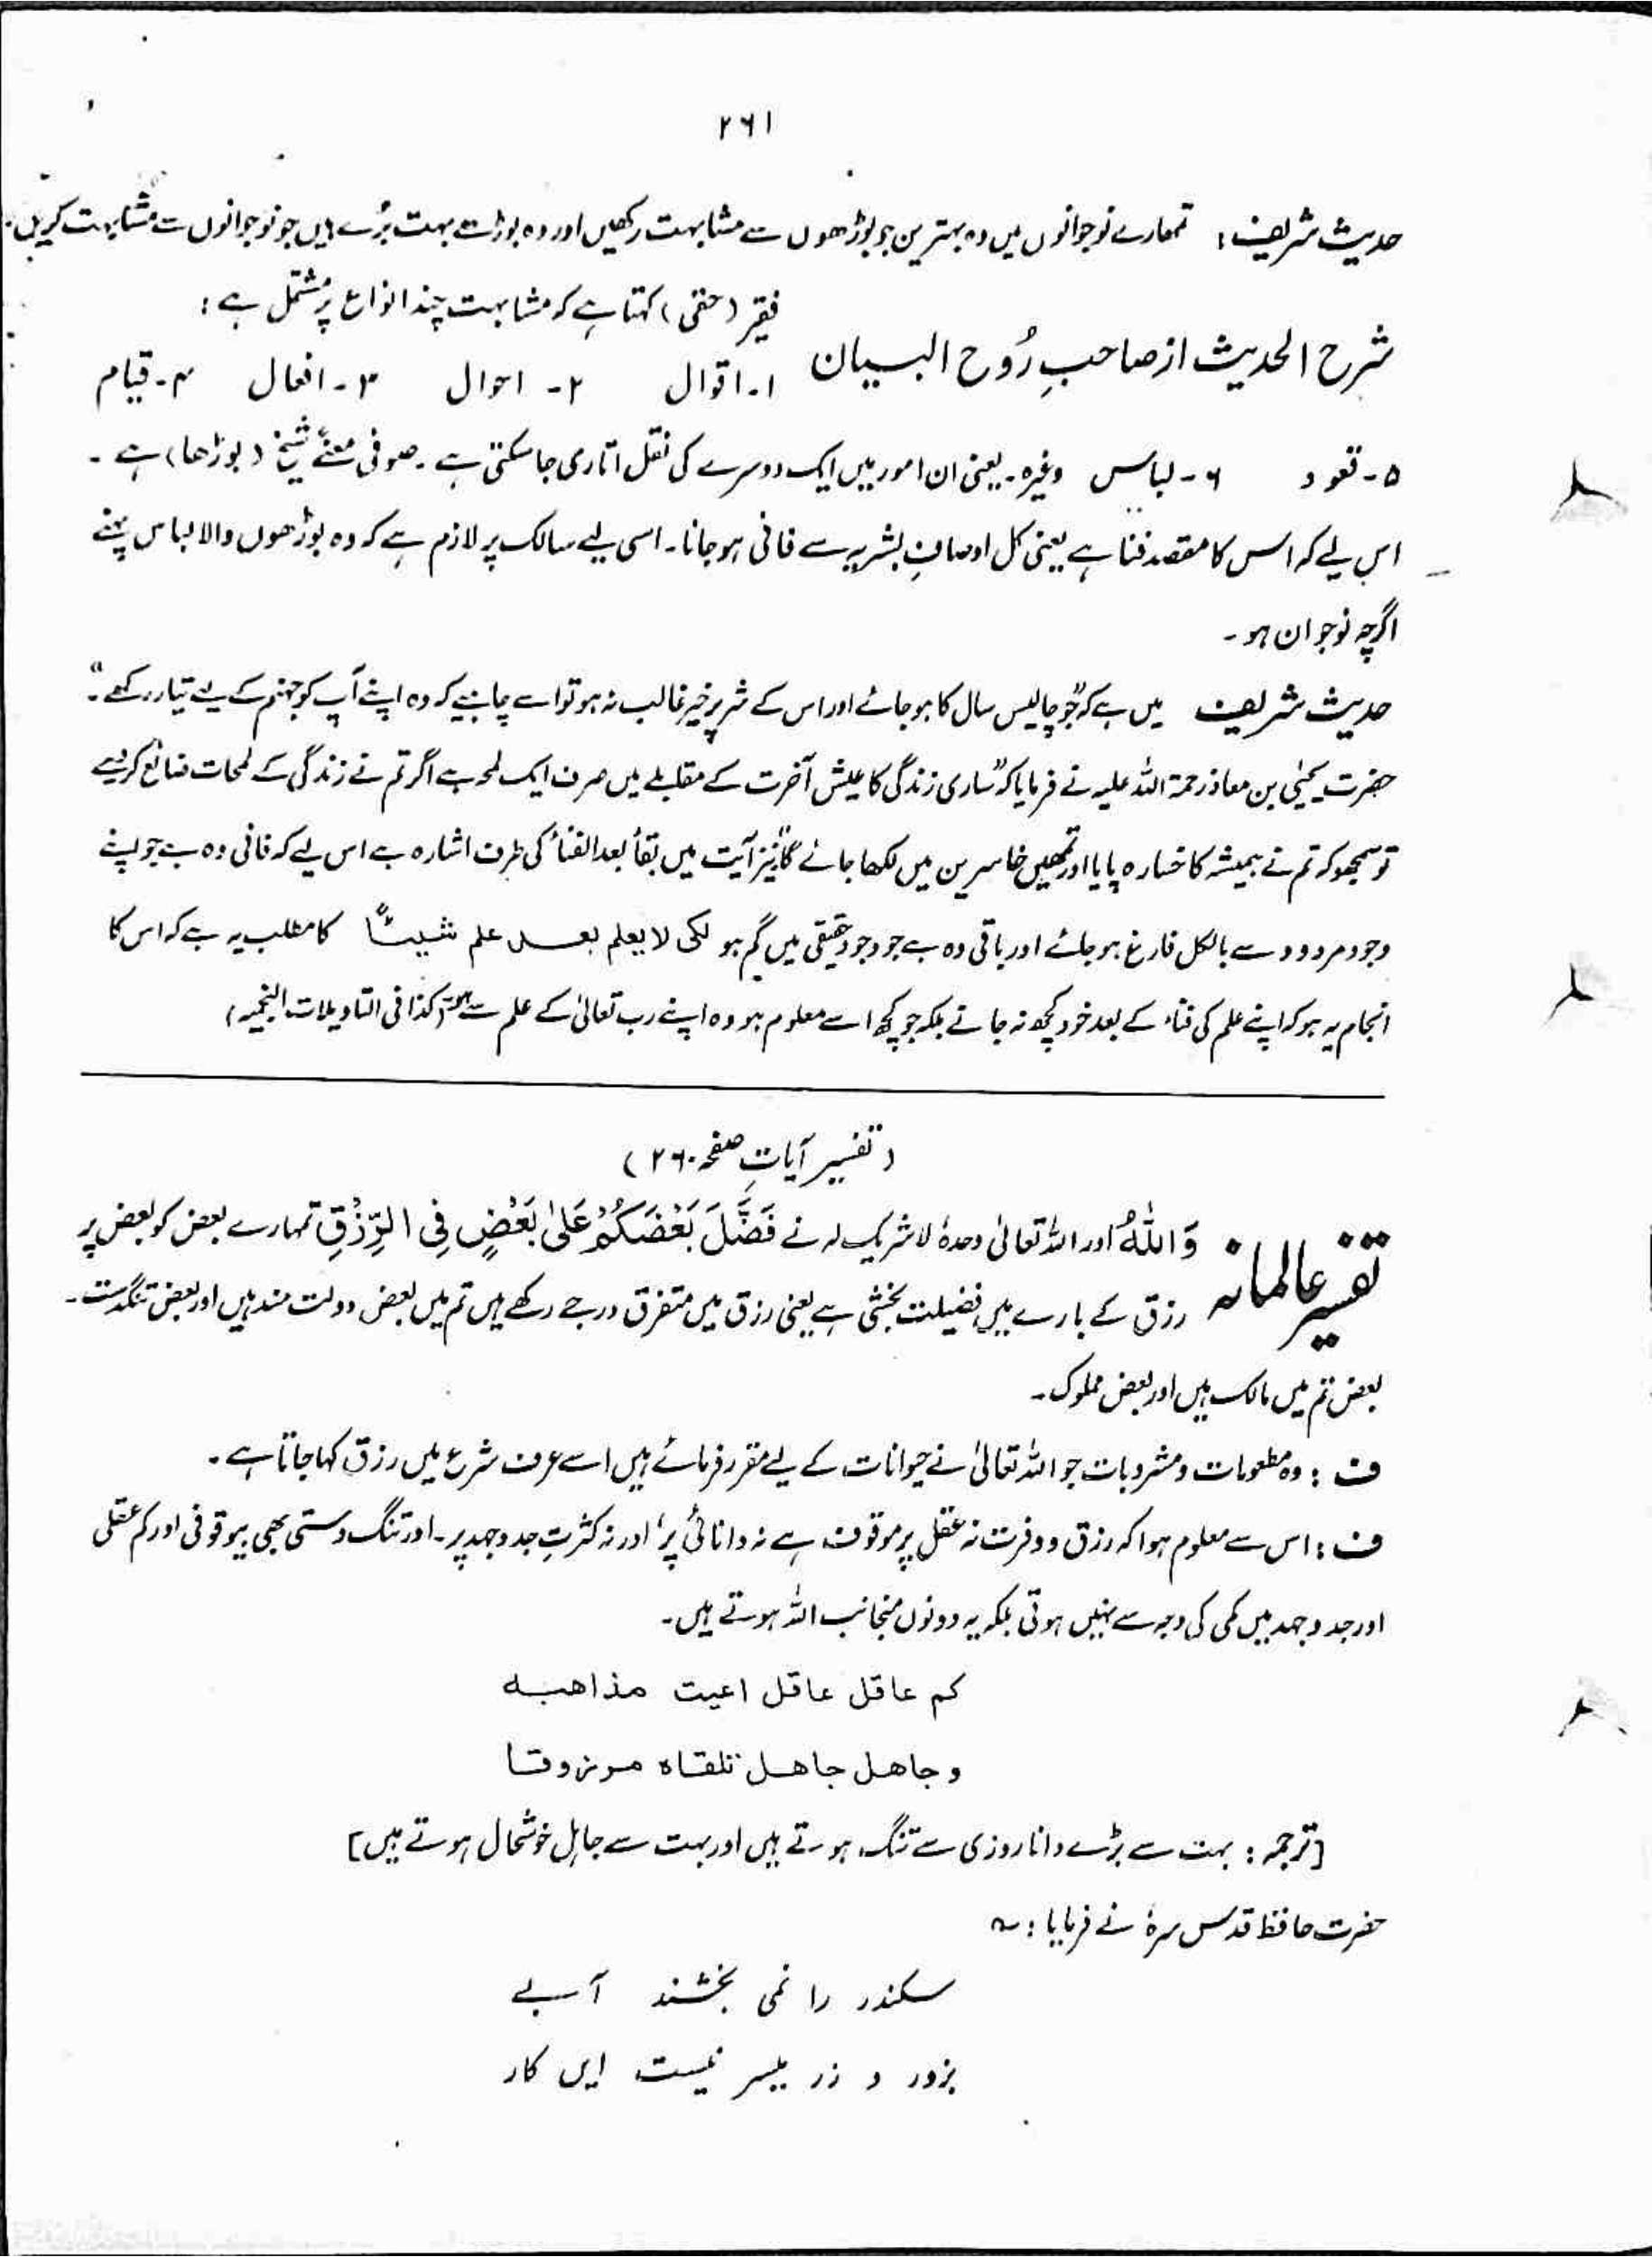 ۲۶۱
حدیث شریف: تمھارے نوجوانوں میں وہ بہترین جو بوڑھوں سے مشابہت رکھیں اور وہ بوڑھے بہت بُرے ہیں جو نوجوانوں سے مشابہت کریں.
شرح الحدیث از صاحبِ رُوح البیان
فقیر (حقی) کہتا ہے کہ مشابہت چند انواع پر مشتمل ہے:
۱۔ اقوال ۲۔ احوال ۳۔ افعال ۴۔ قیام
۵۔ قعود ۶۔ لباس وغیرہ۔ یعنی ان امور میں ایک دوسرے کی نقل اتاری جا سکتی ہے۔ صوفی معنًے شیخ (بوڑھا) ہے۔
اس لیے کہ اس کا مقصد فنا ہے یعنی کل اوصافِ بشریہ سے فانی ہو جانا۔ اسی لیے سالک پر لازم ہے کہ وہ بوڑھوں والا لباس پہنے
اگرچہ نوجوان ہو۔
حدیث شریف میں ہے کہ "جو چالیس سال کا ہو جائے اور اس کے شر پر خیر غالب نہ ہو تو اسے چاہیے کہ وہ اپنے آپ کو جہنم کے لیے تیار رکھے"۔
حضرت یحییٰ بن معاذ رحمۃ اللہ علیہ نے فرمایا کہ "ساری زندگی کا عیش آخرت کے مقابلے میں صرف ایک لمحہ ہے اگر تم نے زندگی کے لمحات ضائع کر دیے
تو سمجھو کہ تم نے ہمیشہ کا خسارہ پایا اور تمھیں خاسرین میں لکھا جائے گا" نیز آیت میں بقأ بعد الفنأ کی طرف اشارہ ہے اس لیے کہ فانی وہ ہے جو اپنے
وجود مردود سے بالکل فارغ ہو جائے اور باقی وہ ہے جو وجود حقیقی میں گم ہو لکی لا یعلم بعد علم شیئًا کا مطلب یہ ہے کہ اس کا
انجام یہ ہو کہ اپنے علم کی فناء کے بعد خود کچھ نہ جانے بلکہ جو کچھ اسے معلوم ہو وہ اپنے رب تعالیٰ کے علم سے ہو۔ (کذا فی التاویلات النجمیہ)
(تفسیر آیاتِ صفحہ ۲۶۰)
تفسیر عالمانہ وَاللّٰہُ اور اللہ تعالیٰ وحدہٗ لا شریک لہ نے فَضَّلَ بَعْضَكُمْ عَلٰی بَعْضٍ فِی الرِّزْقِ تمہارے بعض کو بعض پر
رزق کے بارے میں فضیلت بخشی ہے یعنی رزق میں متفرق درجے رکھے ہیں تم میں بعض دولت مند ہیں اور بعض تنگدست۔
بعض تم میں مالک ہیں اور بعض مملوک۔
ف: وہ مطعومات و مشروبات جو اللہ تعالیٰ نے حیوانات کے لیے مقرر فرمائے ہیں اسے عرف شرع میں رزق کہا جاتا ہے۔
ف: اس سے معلوم ہوا کہ رزق و وفرت نہ عقل پر موقوف ہے نہ دانائی پر، اور نہ کثرتِ جد و جہد پر۔ اور تنگ دستی بھی بیوقوفی اور کم عقلی
اور جد و جہد میں کمی کی وجہ سے نہیں ہوتی بلکہ یہ دونوں منجانب اللہ ہوتے ہیں۔
کم عاقل عاقل اعیت مذاھبہ
و جاھل جاھل تلقاہ مرزوقا
[ترجمہ: بہت سے بڑے دانا روزی سے تنگ ہوتے ہیں اور بہت سے جاہل خوشحال ہوتے ہیں]
حضرت حافظ قدس سرہٗ نے فرمایا: ؎
سکندر را نمی بخشند آبے
بزور و زر میسر نیست ایں کار